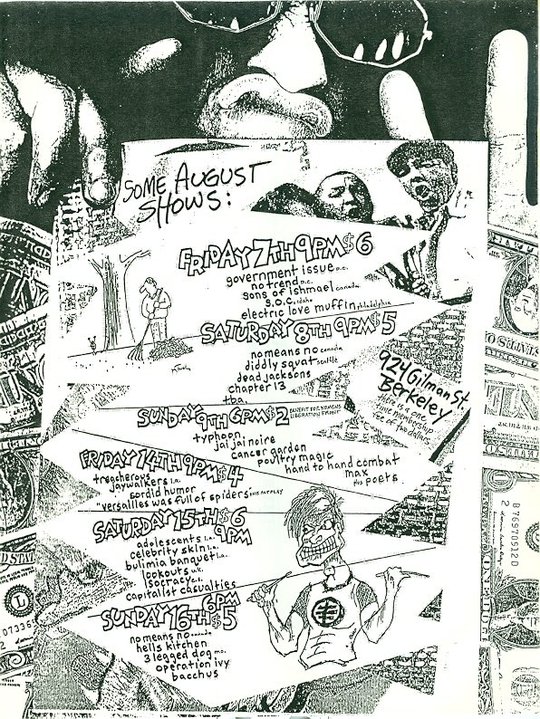 SOME AUGUST
SHOWS:
FRIDAY 7TH 9PM $6
government issue d.c.
no trend d.c.
sons of ishmael canada
s.o.c. idaho
electric love muffin philadelphia
SATURDAY 8TH 9PM $5
nomeans no canada
diddly squat seattle
dead jacksons
chapter 13
tba.
924 Gilman St
Berkeley
there is a one
time membership
fee of two dollars.
SUNDAY 9TH 6PM $2 BENEFIT FOR WOMENS
LIBERATION FRONT
typhoon
jai jai noire
cancer garden
poultry magic
hand to hand combat
max
plus poets.
FRIDAY 14TH 9PM $4
treacherous
jaywalkers l.a.
sordid humor
"versailles was full of spiders"
SATURDAY 15TH $6
9PM
adolescents l.a.
celebrity skin l.a.
bulimia banquet l.a.
lookouts
isocracy
capitalist casualties
SUNDAY 16TH 6PM $5
nomeans no canada
hells kitchen
3 legged dog
operation ivy
bacchus
B76970512D
2
07335
L